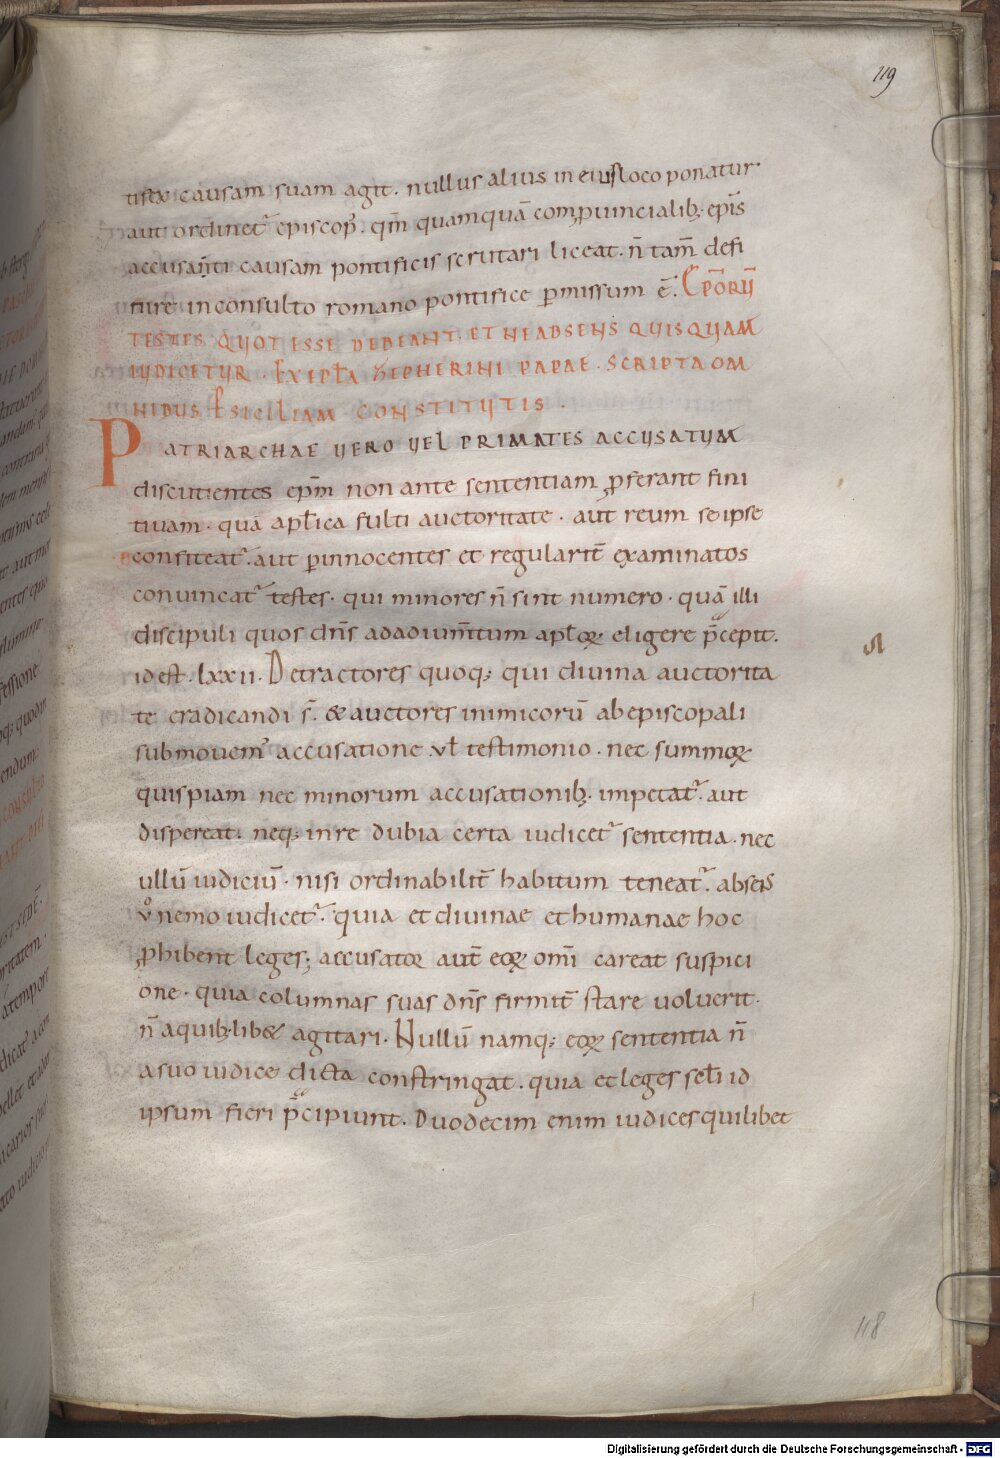 119
tifex causam suam agit. nullus alius in eius loco ponatur
aut ordinet᷒ episcop᷒. qm̄ quamquā comp̱uincialib; ep̄is
accusati causam pontificis scrutari liceat. n̄ tam̄ defi
nire inconsulto romano pontifice p̱missum ē. Ep̄orū
testes quot esse debeant. et ne absens quisquam
iudicetur. ex ep̄la zepherini papae. scripta om
nibus siciliam constitutis.
Patriarchae uero uel primates accusatum
discutientes ep̄m non ante sententiam p̱ferant fini
tiuam. quā apl̄ica fulti auctoritate. aut reum se ipse
confiteat᷒. aut p̱ innocentes et regularit̄ examinatos
conuincat᷒ testes. qui minores n̄ sint numero. quā illi
discipuli quos dn̄s ad adium̄tum apl̄oꝝ eligere p̄cepit.
id est. lxxii. Detractores quoq; qui diuina auctorita
te eradicandi s̄. & auctores inimicorū ab episcopali
submouem᷒ accusatione ul̄ testimonio. nec summoꝝ
quispiam nec minorum accusationib; impetat᷒. aut
dispereat. neq; in re dubia certa iudicet᷒ sententia. nec
ullū iudiciū. nisi ordinabilit̄ habitum teneat᷒. absens
uͦ nemo iudicet᷒. quia et diuinae et humanae hoc
p̱hibent leges; accusatoꝝ aut̄ eoꝝ om̄i careat suspici
one. quia columnas suas dn̄s firmit̄ stare uoluerit.
n̄ a quib; lib& agitari. Nullū namq; eoꝝ sententia n̄
a suo iudice dicta constringat. quia et leges sc̄li id
ipsum fieri p̄cipiunt. Duodecim enim iudices quilibet
118
Digitalisierung gefördert durch die Deutsche Forschungsgemeinschaft - DFG